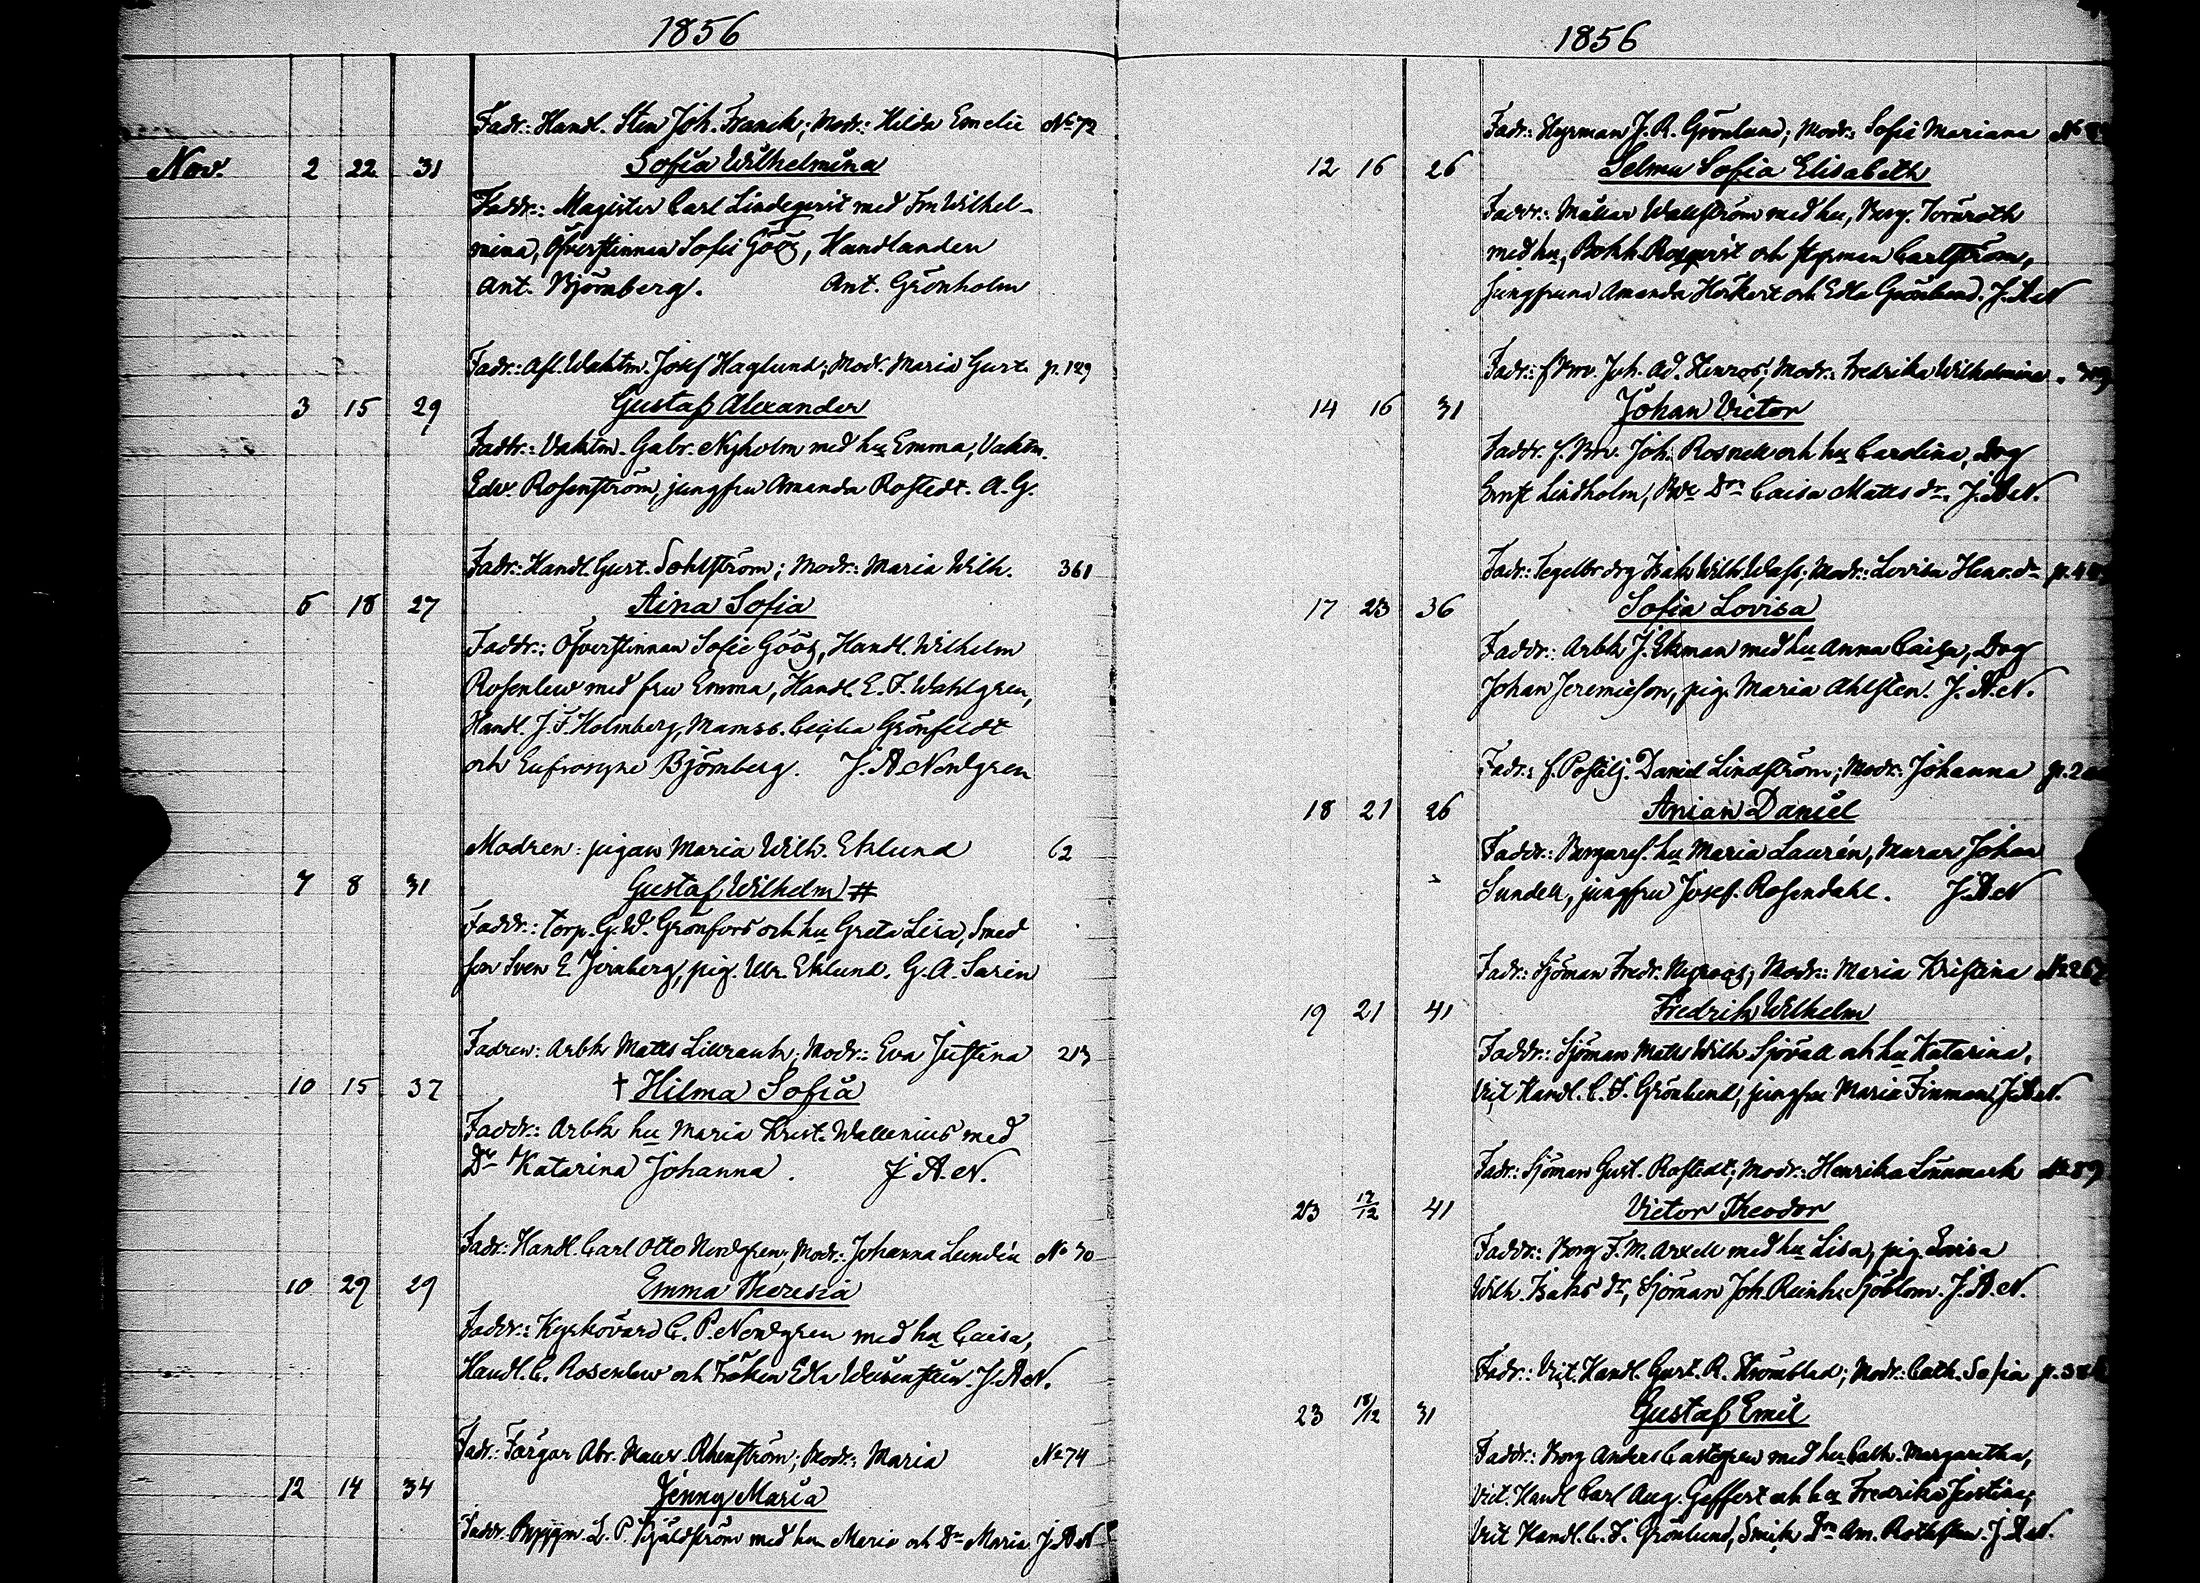 1856
Fadr.: Handl. Sten Joh. Franck; Modr.: Hilda Emelie No 72
Nov. 2 22 31 Sofia Wilhelmina
Faddr.: Magister Carl Lindeqvist med Fru Wilhel-
mina, Öfverstinnan Sofie Gööz, Handlanden
Ant. Björnberg. Ant. Grönholm
Fadr.: Afl. Waktm. Josef Haglund; Modr. Maria Gust. p. 129
3 15 29 Gustaf Alexander
Faddr.: Vaktm. Gabr. Nyholm med hu Emma, Vaktm.
Edv. Rosenström, jungfru Amanda Rostedt. A. G.
Fadr.: Handl. Gust. Sohlström; Modr.: Maria Wilh. 361
5 18 27 Aina Sofia
Faddr.: Öfverstinnan Sofie Gööz, Handl. Wilhelm
Rosenlew med fru Emma, Handl. E. F. Wahlgren,
Handl. J. F. Holmberg, Mamss. Cecilia Grönfeldt
och Eufrosyne Björnberg. J. A. Nordgren
Modren: pigan Maria Wilh. Eklund 62
7 8 31 Gustaf Wilhelm #
Faddr.: Torp. G. W. Grönfors och hu Greta Lisa, Smed
son Sven E. Jernberg, pig. Ulr. Eklund. G. A. Sarin
Fadren: Arbk Matts Lillrank; Modr.: Eva Justina 213
10 15 37 † Hilma Sofia
Faddr.: Arbk hu Maria Krist. Wallenius med
Dr Katarina Johanna. J. A. N.
Fadr.: Handl. Carl Otto Nordgren; Modr.: Johanna Lundén No 70
10 29 29 Emma Theresia
Faddr.: Kyrkovärd C. P. Nordgren med hu Caisa,
Handl. C. Rosenlew och Fröken Edla Weisenstein. J. A. N.
Fadr.: Färgar Abr. Rhenström; Modr.: Maria No 74
12 14 34 Jenny Maria
Faddr. L. P. Kjäldström med hu Maria och Dr Maria J. A. N
1856
Fadr.: Styrman J. R. Grönlund; Modr.: Sofie Mariana No
12 16 26 Selma Sofia Elisabeth
Faddr.: Målar Wallström med hu, Borg. Tornroth
med hu, Bokh. Rosqvist och styrman Carlström,
jungfruna Amanda Herkert och Edla Grönlund. J. A. N
Fadr.: Joh. Ad. Henros; Modr.: Fredrika Wilhelmina
14 16 31 Johan Victor
Faddr. Joh. Rosnell och hu Carolina, Drg
Ernst Lindholm, Dr Caisa Matts dr. J. A. N.
Fadr.: Tegelbr drg Isak Wilh. Wass; Modr.: Lovisa Henr. dr p.
17 23 36 Sofia Lovisa
Faddr.: Arbk J. Ekman med hu Anna Caisa, Drg
Johan Jeremieson, pig. Maria Ahlsten. J. A. N.
Fadr.: f. Postilj. Daniel Lindström; Modr.: Johanna p. 2
18 21 26 Anian Daniel
Faddr.: Borgaresf. hu Maria Laurén, Murar Johan
Sundell, jungfru Josef. Rosendahl. J. A. N
Fadr.: Sjöman Fredr. Modr.: Maria Kristina No 267
19 21 41 Fredrik Wilhelm
Faddr.: Sjöman Matts Wilh. Sjövall och hu Katarina,
Vict. Handl. C. F. Grönlund, jungfru Maria Finman J. A. N.
Fadr.: Sjöman Gust. Rostedt; Modr.: Henrika Linnmark No 89
23 17/12 41 Victor Theodor
Faddr.: Borg F. M. Arxell med hu Lisa, pig. Lovisa
Wilh. Isaks dr, Sjöman Joh. Reinh. Sjöblom. J. A. N.
Fadr.: Vict. Handl. Gust. R. Strömblad; Modr.: Cath. Sofia p.
23 18/12 31 Gustaf Emil
Faddr.: Borg Anders Castegren med hu Cath. Margaretha,
Vict. Handl Carl Aug. Geffert och hu Fredrika Justina,
Vict Handl. C. F. Grönlund, Dr Am. Rothsten. J. A. N.